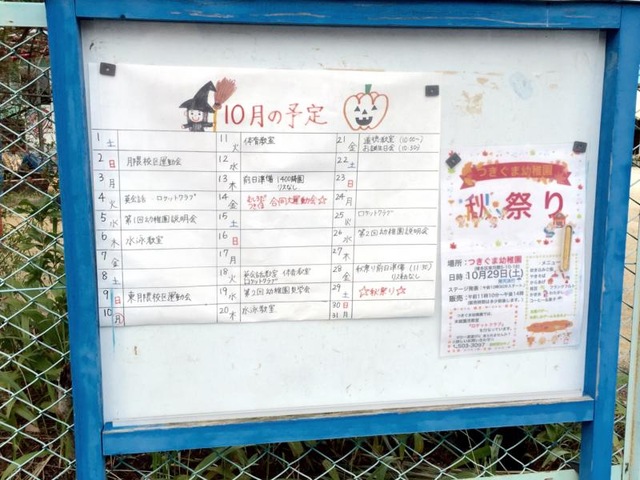 10月の予定
1 土
2 日 月隈校区運動会
3 月
4 火 英会話・ロケットクラブ
5 水 第1回幼稚園説明会
6 木 水泳教室
7 金
8 土
9 日 東月隈校区運動会
10 月
11 火 体育教室
12 水
13 木 前日準備 1400降園
バスなし
14 金 合同大運動会☆
15 土
16 日
17 月
18 火 英会話教室 体育教室
ロケットクラブ
19 水 第2回幼稚園見学会
20 木 水泳教室
21 金 お誕生会 (10:30)
22 土
23 日
24 月
25 火 ロケットクラブ
26 水 第2回幼稚園説明会
27 木
28 金 秋祭り前日準備 (11:30)
バスなし
29 土 ☆秋祭り☆
30 日
31 月
つきぐま幼稚園
秋祭り
場所:つきぐま幼稚園
日時:10月29日(土)
メニュー
販売:午前11時10分~午後14時
『ロケットクラブ』
503-3097